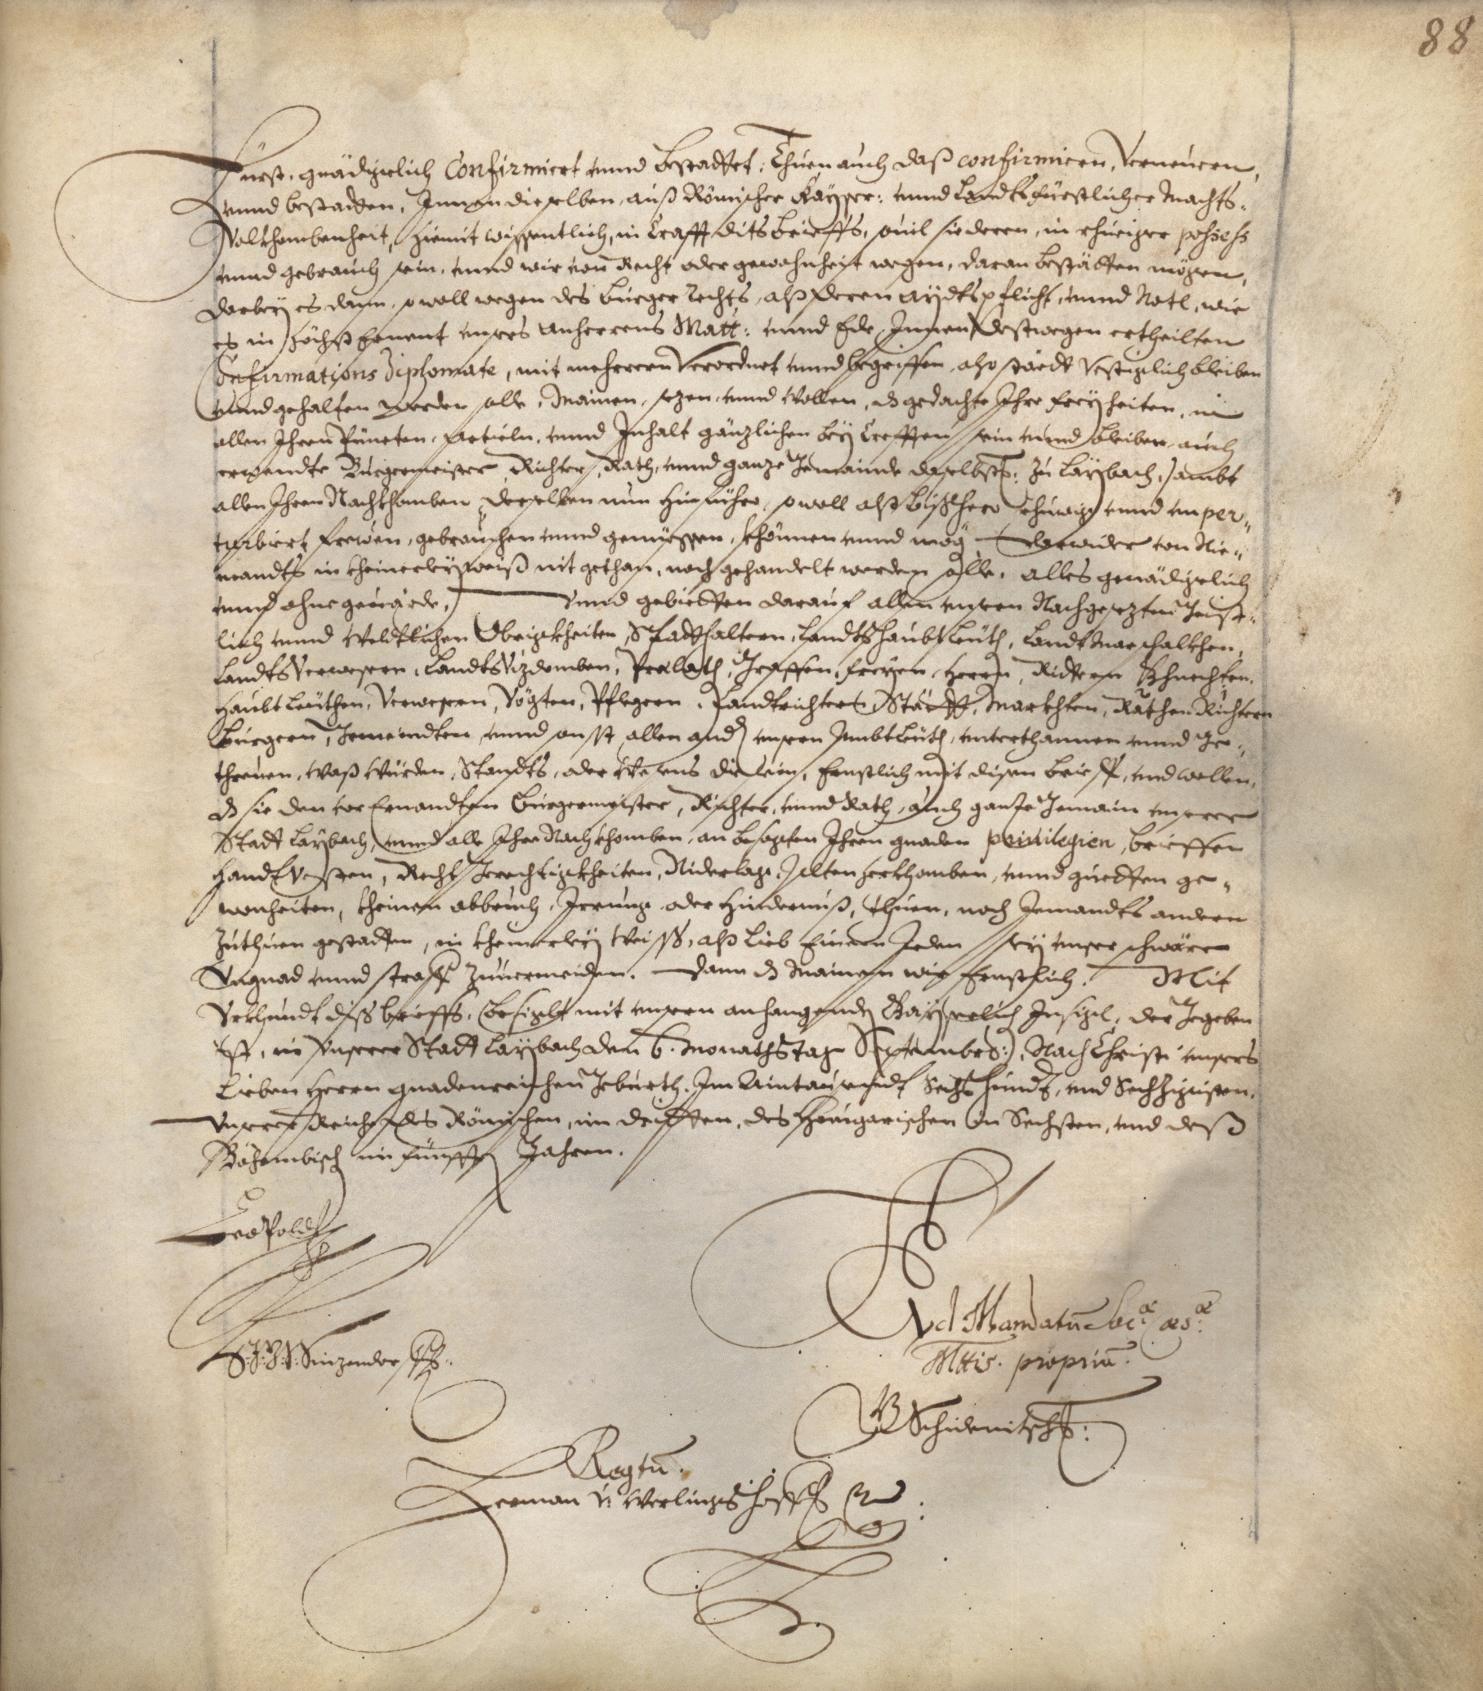 88
Fürst, gnädigelich Confirmiert vnnd bestattet, Thuen auch daß confirmieren, Verneuern,
vnnd bestatten, Innen dieselben, auß Römischer Kayser: vnnd Landtsfürstlicher Machts-
Volkhombenheit, hiemit wissentlich, in Crafft dits brieffs, souil sie deren, in rhüeiger possess
vnnd gebrauch sein, vnnd wir von Recht oder gewohnheit wegen, daran bestätten mögen,
darbey es dann, sowoll wegen des burger Rechts, alß deren aydtspflicht, vnnd Notl, wie
es in höchst ernent vnsers Anherrens Matt: vnnd Ede, Innen destwegen ertheilten
Confirmations Diplomate, mit mehrerm Verordnet vnnd begriffen, also städt Vestigelich bleiben
vnnd gehalten werden solle, Mainen, sezen, vnnd Wollen, dz gedachte Ihre freyheiten, in
allen Ihren Puncten, Articln, vnnd Inhalt gänzlichen bey Crefften sein vnnd bleiben, auch
ernendte Burgermeister, Richter, Rath, vnnd ganze Gemainde daselbsten, zu Laybach, sambt
allen Ihren Nachkhomben, derselben nun hinfüro, sowoll alß bißhero rhüwig vnnd vnper-
turbiert, frewen, gebrauchen vnnd geniessen, khönnen vnnd mög darwider von Nie-
mandts in kheinerley weiß nit gethan, noch gehandelt werden solle, alles genädigelich
vnnd ohne geuärde, Vnnd gebietten darauf allen vnsern Nachgesezten Geist-
lich vnnd Weldtlichen Obrigkheiten, Stadthaltern, Landtshaubtleüth, Landtmarschalkhen,
Landts Verwesern, Landts Vizdomben, Prelath, Graffen, freyen, Herrn, Rittern Khnechten,
Haubtleüthen, Verwesern, Vögten, Pflegern, Landtrichtern, Stätt, Markhten, Räthen Richtern
Burgern, Gemeindten, vnnd sonst allen andn vnsern Ambtleüth, vnterthannen vnnd Ge-
threuen, Waß Würden, Standts, oder Wesens die sein, Ernstlich mit disem brieff, vnd wellen,
dz sie den vor Ernandten Burgermeister, Richter, vnnd Rath, auch ganze Gemain vnserer
Stadt Laybach, vnnd alle Ihre Nachkhomben, an besagten Ihren gnaden Priuilegien, brieffen
Handtvesten, Recht, Gerechtigkheiten, Niderlag, alten herkhomben, vnnd guetten ge-
wonheiten, kheinen abbruch, Irrung oder hindernuß, thuen, noch Jemandts andern
zuthuen gestatten, in kheinerley Weiß, alß lieb Einem Jeden sey vnser schwäre
Vngnad vnnd straff zuuermeiden. Dann dz Mainen wir Ernstlich. Mit
Vrkhundt diß brieffs, besiglt mit vnsern anhangenden Kayserlich Insigl, der Gegeben
ist, in vnserer Stadt Laybach den 6. Monathstag Septembris, Nach Christi vnsers
Lieben Herrn gnadenreichen Geburth, Im Aintausendt Sechshundt, vnd Sechzigisten,
Vnserer Reiche, des Römischen, im dritten, des Hungarischen im Sechsten, vnd deß
Böhembisch im fünfften Jahren.
Leopold
Ad Mandatũ Sacᵃᵉ Cæsᵃᵉ
Mttis. propriũ.
Sinzendorff
Schidenitsch
Regtũ.
Herman